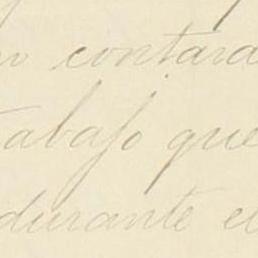 contara
trabajo que
durante el